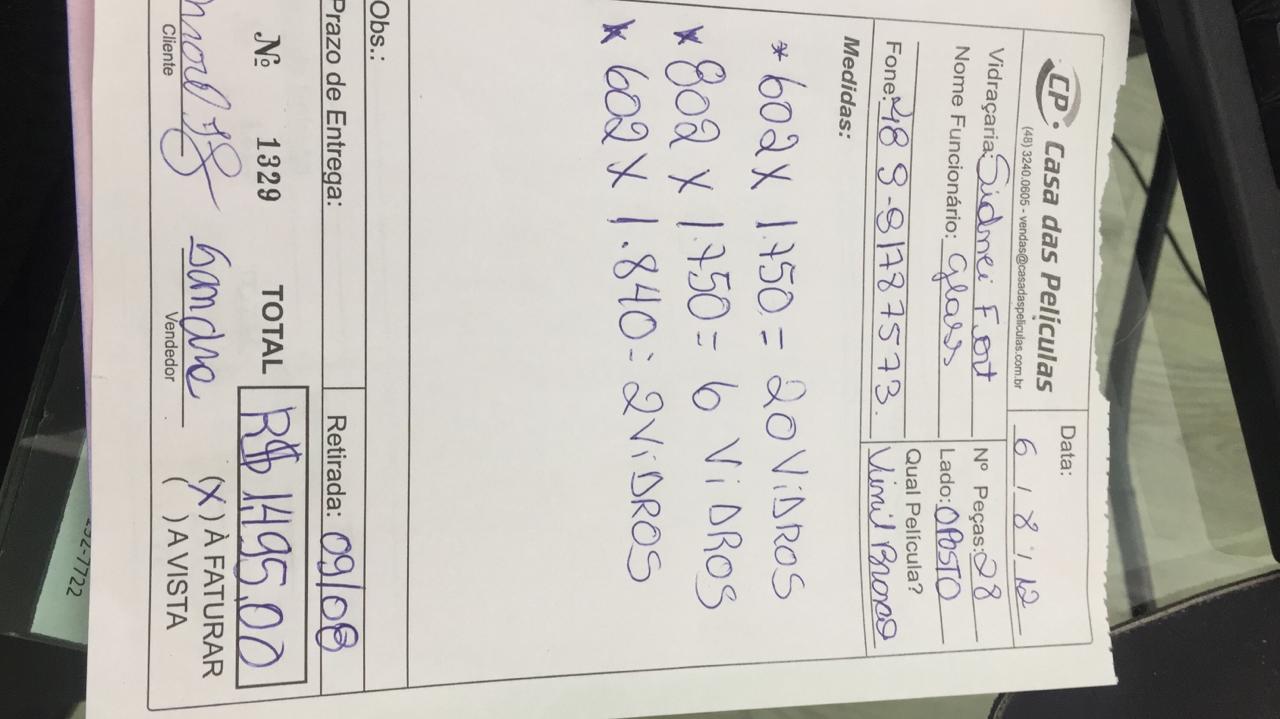 CP. Casa das Películas
(48) 3240.0605 - vendas@casadaspeliculas.com.br
Data:
6 / 8 / 12
Vidraçaria: Sidnei Fort
Nº Peças: 28
Nome Funcionário: Glass
Lado: OPOSTO
Fone: 48 9-9178 7573.
Qual Película?
Vinil Branco
Medidas:
* 602 X 1.750 = 20 ViDROS
* 802 X 1.750 = 6 ViDROS
* 602 X 1.840 = 2 ViDROS
Obs.:
Prazo de Entrega:
Retirada: 09/08
Nº 1329 TOTAL R$ 1.495,00
(X) À FATURAR
( ) A VISTA
Sandra
Cliente
Vendedor